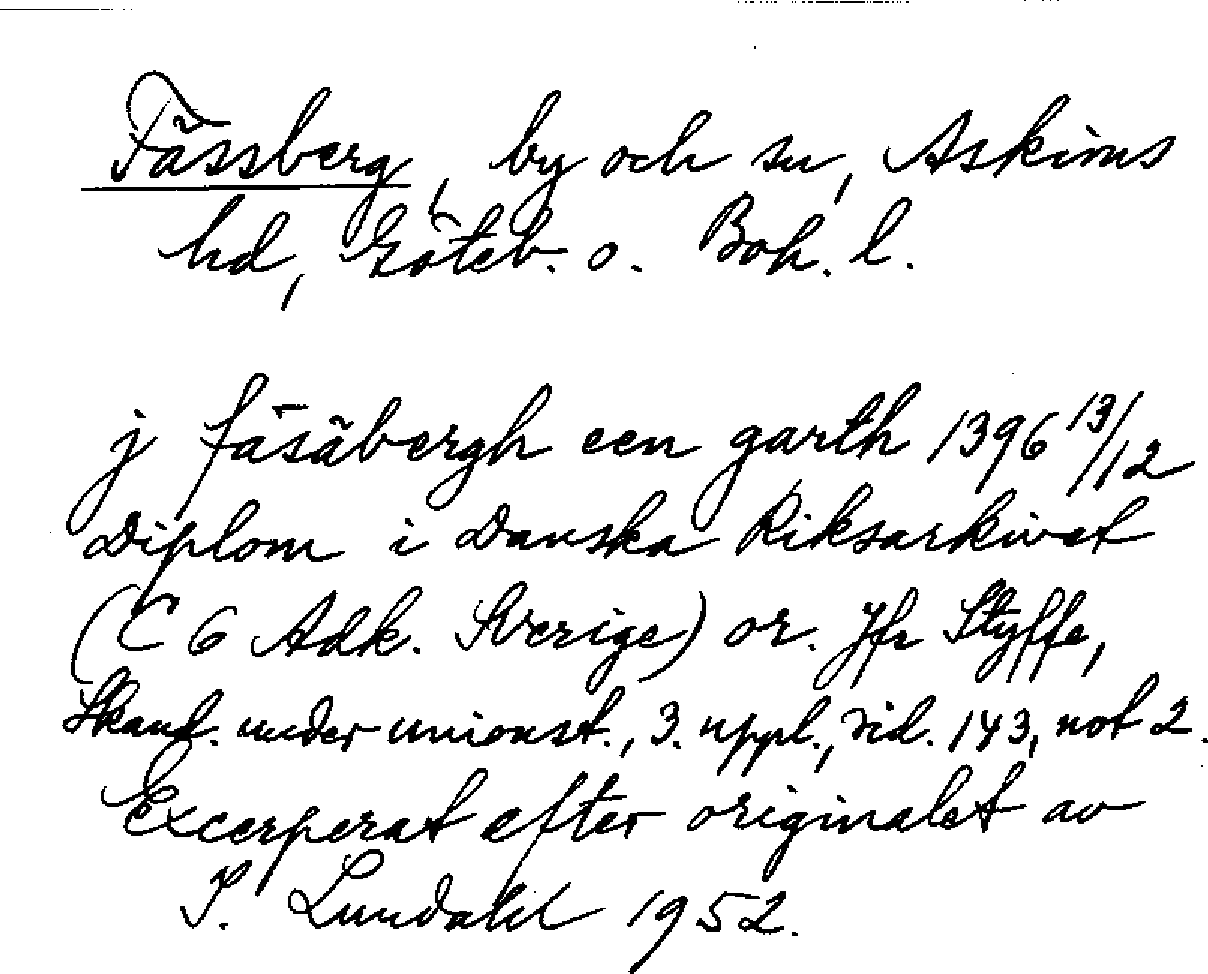 Fässberg, by och sn, Askims
hd, Göteb. o. Boh. l.
j fäsäbergh een garth 1396 13/12
Diplom i Danska Riksarkivet
(C 6 Adk. Sverige) or. Jfr Styffe,
Skand. under unionst., 3. uppl., sid. 143, not 2.
Excerperat efter originalet av
I. Lundahl 1952.